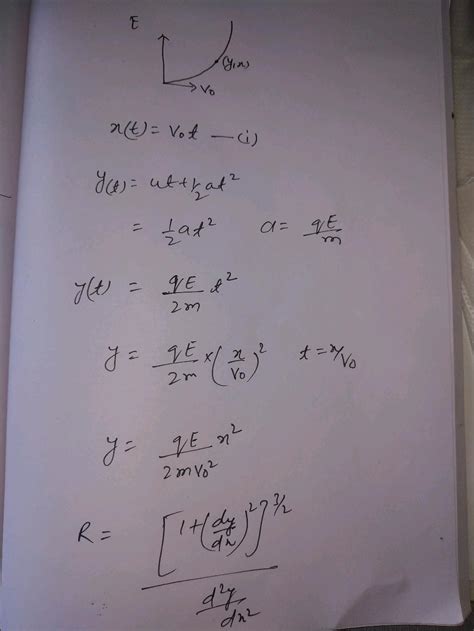 E
(y,x)
V₀
x(t) = V₀t —(i)
y(t) = ut + 1/2 at²
= 1/2 at² a = qE/m
y(t) = qE/2m t²
y = qE/2m × (x/V₀)² t = x/V₀
y = qE x²/2mV₀²
R = [1+(dy/dx)²]^3/2 / d²y/dx²